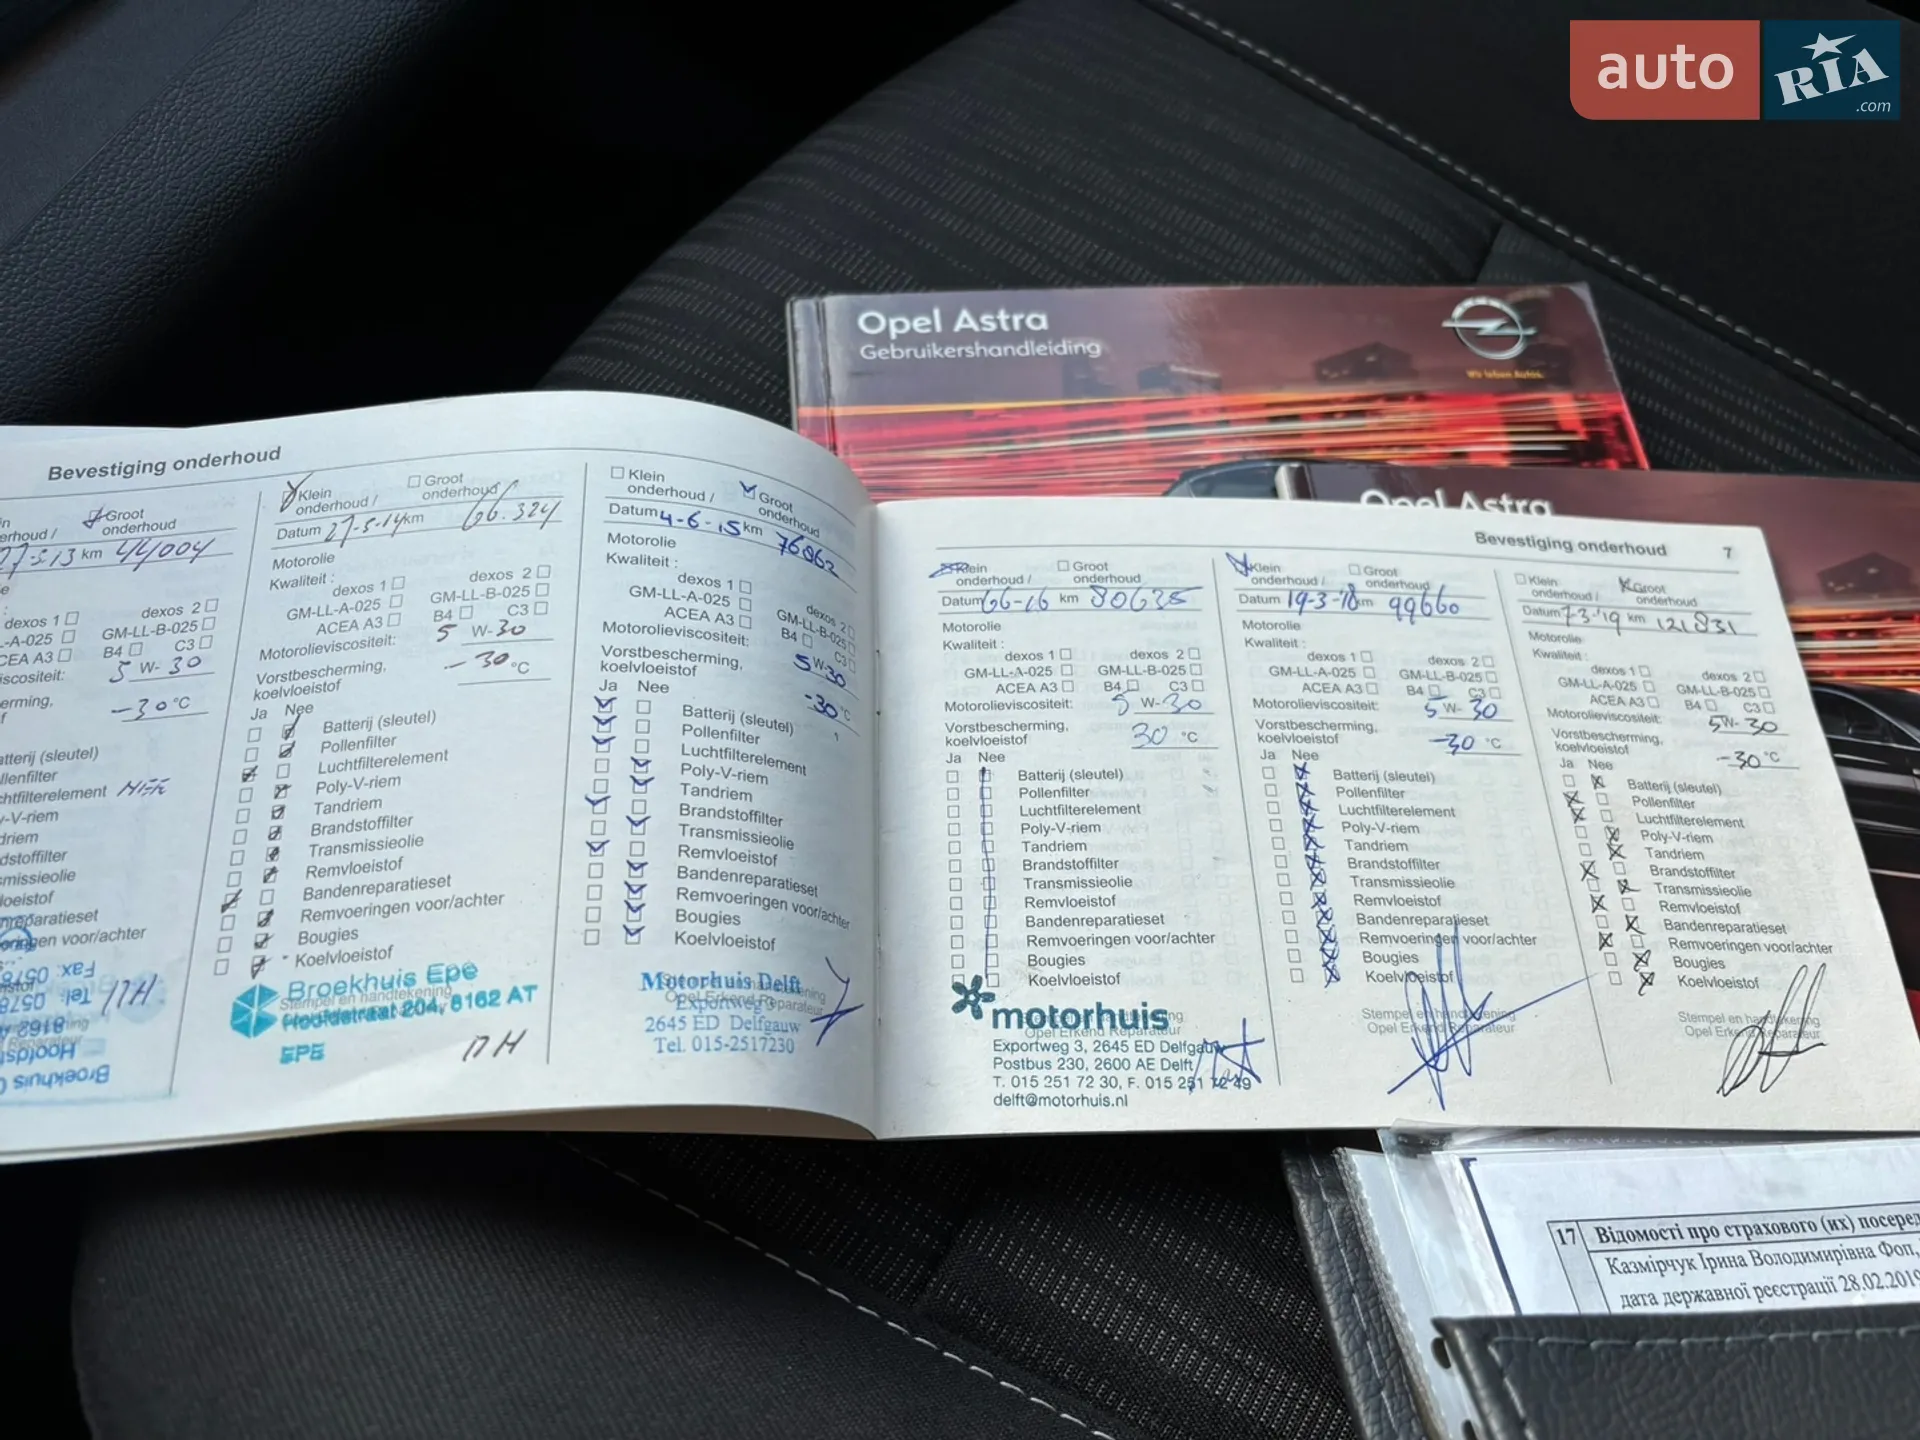 auto
RIA
.com
Opel Astra
Gebruikershandleiding
Wir leben Autos.
Opel Astra
Bevestiging onderhoud
Groot
onderhoud
km 44004
dexos 1
dexos 2
GM-LL-B-025
B4
C3
5 W-30
-30 °C
Broekhuis
Klein
onderhoud /
Groot
onderhoud
Datum 27-5-14 km 66.324
Motorolie
Kwaliteit :
dexos 1
dexos 2
GM-LL-A-025
GM-LL-B-025
ACEA A3
B4
C3
Motorolieviscositeit: 5 W-30
Vorstbescherming,
koelvloeistof
-30 °C
Ja Nee
Batterij (sleutel)
Pollenfilter
Luchtfilterelement
Poly-V-riem
Tandriem
Brandstoffilter
Transmissieolie
Remvloeistof
Bandenreparatieset
Remvoeringen voor/achter
Bougies
Koelvloeistof
Broekhuis Epe
Stempel en handtekening
Hoofdstraat 204, 8162 AT
EPE
Klein
onderhoud /
Groot
onderhoud
Datum 4-6-15 km 76862
Motorolie
Kwaliteit :
dexos 1
dexos 2
GM-LL-A-025
GM-LL-B-025
ACEA A3
B4
C3
Motorolieviscositeit: 5 W-30
Vorstbescherming,
koelvloeistof
-30 °C
Ja Nee
Batterij (sleutel)
Pollenfilter
Luchtfilterelement
Poly-V-riem
Tandriem
Brandstoffilter
Transmissieolie
Remvloeistof
Bandenreparatieset
Remvoeringen voor/achter
Bougies
Koelvloeistof
Motorhuis Delft
Opel Erkend Reparateur
Exportweg
2645 ED Delfgauw
Tel. 015-2517230
Bevestiging onderhoud 7
Klein
onderhoud /
Groot
onderhoud
Datum 66-16 km 80635
Motorolie
Kwaliteit :
dexos 1
dexos 2
GM-LL-A-025
GM-LL-B-025
ACEA A3
B4
C3
Motorolieviscositeit: 5 W-30
Vorstbescherming,
koelvloeistof
30 °C
Ja Nee
Batterij (sleutel)
Pollenfilter
Luchtfilterelement
Poly-V-riem
Tandriem
Brandstoffilter
Transmissieolie
Remvloeistof
Bandenreparatieset
Remvoeringen voor/achter
Bougies
Koelvloeistof
motorhuis
Opel Erkend Reparateur
Exportweg 3, 2645 ED Delfgauw
Postbus 230, 2600 AE Delft
T. 015 251 72 30, F. 015 251 72 49
delft@motorhuis.nl
Klein
onderhoud /
Groot
onderhoud
Datum 19-3-18 km 99660
Motorolie
Kwaliteit :
dexos 1
dexos 2
GM-LL-A-025
GM-LL-B-025
ACEA A3
B4
C3
Motorolieviscositeit: 5 W-30
Vorstbescherming,
koelvloeistof
-30 °C
Ja Nee
Batterij (sleutel)
Pollenfilter
Luchtfilterelement
Poly-V-riem
Tandriem
Brandstoffilter
Transmissieolie
Remvloeistof
Bandenreparatieset
Remvoeringen voor/achter
Bougies
Koelvloeistof
Stempel en handtekening
Opel Erkend Reparateur
Klein
onderhoud /
Groot
onderhoud
Datum 7-3-'19 km 121831
Motorolie
Kwaliteit :
dexos 1
dexos 2
GM-LL-A-025
GM-LL-B-025
ACEA A3
B4
C3
Motorolieviscositeit: 5W-30
Vorstbescherming,
koelvloeistof
-30 °C
Ja Nee
Batterij (sleutel)
Pollenfilter
Luchtfilterelement
Poly-V-riem
Tandriem
Brandstoffilter
Transmissieolie
Remvloeistof
Bandenreparatieset
Remvoeringen voor/achter
Bougies
Koelvloeistof
Stempel en handtekening
Opel Erkend Reparateur
17 Відомості про страхового (их) посеред
Казмірчук Ірина Володимирівна Фоп,
дата державної реєстрації 28.02.2019